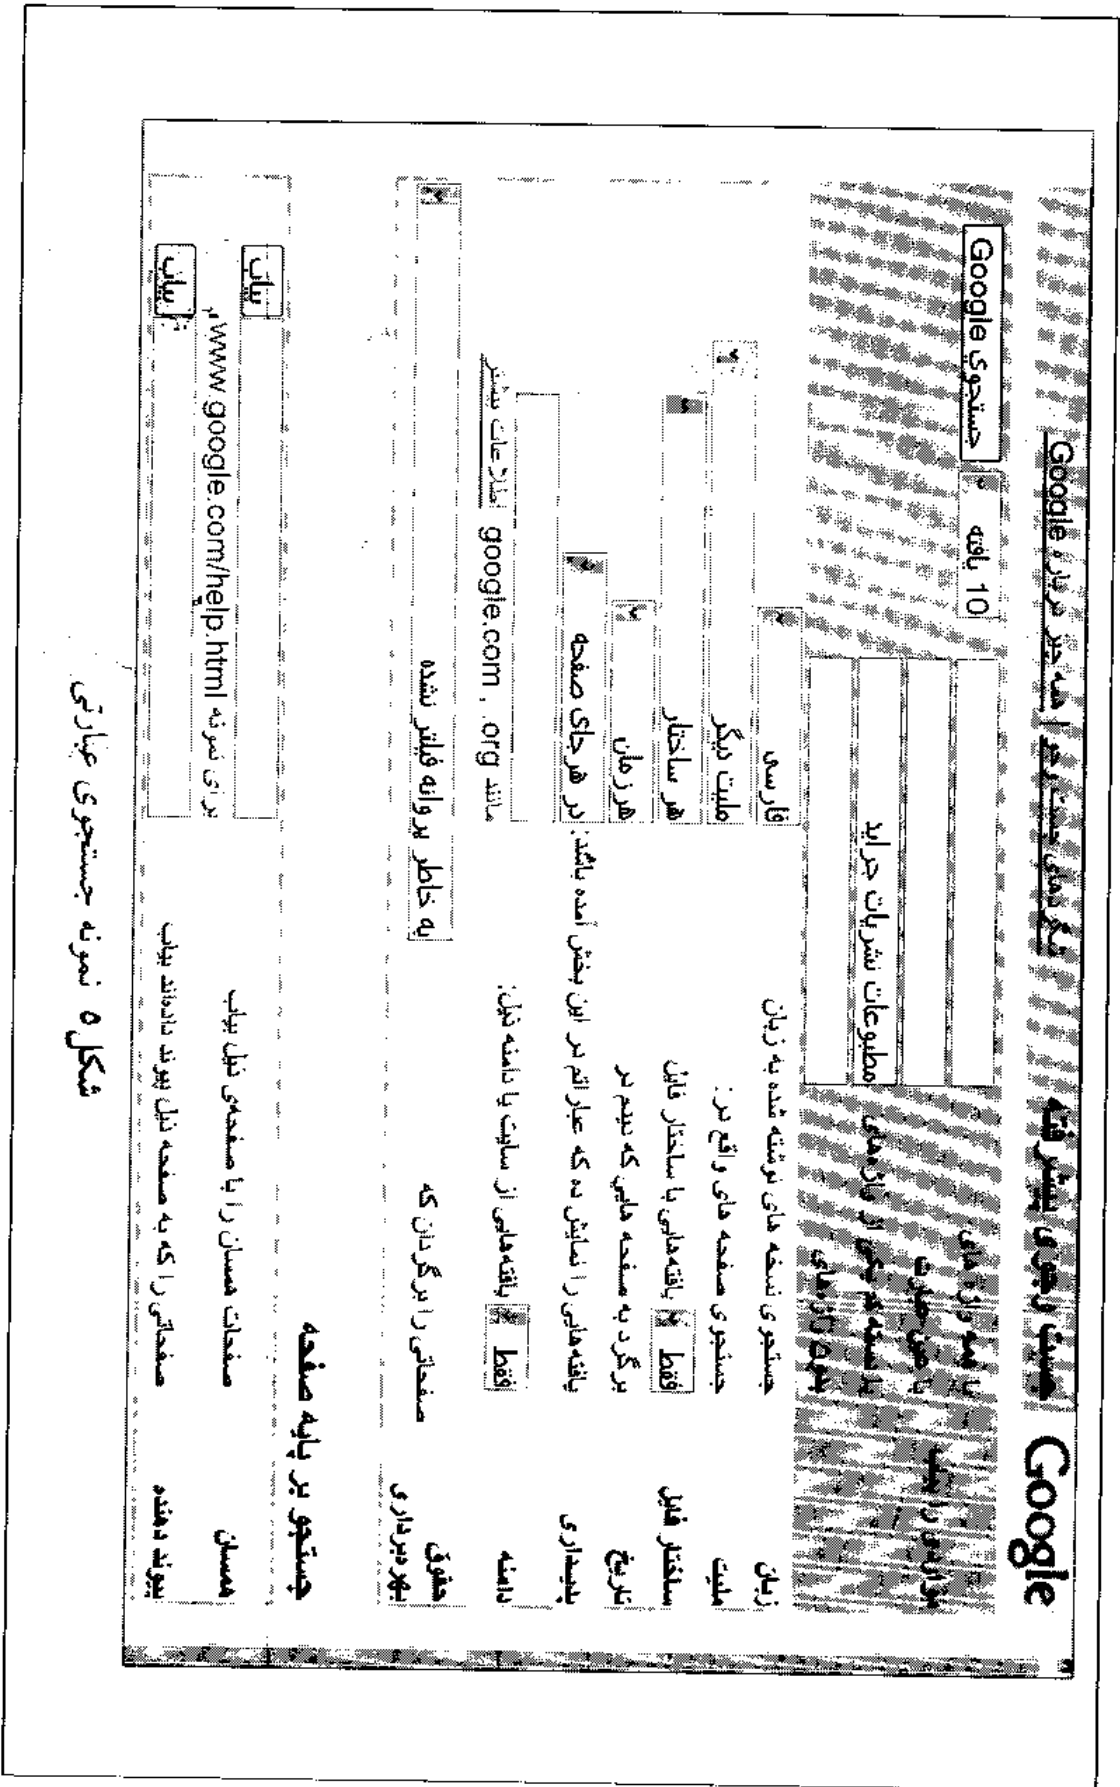 Google جست و جوی پیشرفته شگردهای جست و جو | همه چیز درباره Google
مواردی را بیاب
با همه واژه های
با عین عبارت
با دسته کم یکی از واژه‌های مطبوعات نشریات جراید
بدون واژه‌های
10 یافته جستجوی Google
زبان جستجوی نسخه های نوشته شده به زبان فارسی
ملیت جستجوی صفحه های واقع در : ملیت دیگر
ساختار فایل فقط یافته‌هایی با ساختار فایل هر ساختار
تاریخ برگرد به صفحه هایی که دیدم در هر زمان
پدیداری یافته‌هایی را نمایش ده که عباراتم در این بخش آمده باشد: در هر جای صفحه
دامنه فقط یافته‌هایی از سایت با دامنه ذیل:
مانند google.com , .org اطلاعات بیشتر
حقوق بهره‌برداری صفحاتی را برگردان که به خاطر پروانه فیلتر نشده
جستجو بر پایه صفحه
همسان صفحات همسان را با صفحه‌ی ذیل بیاب بیاب
برای نمونه www.google.com/help.html
پیوند دهنده صفحاتی را که به صفحه ذیل پیوند داده‌اند بیاب بیاب
شکل ۵ نمونه جستجوی عبارتی